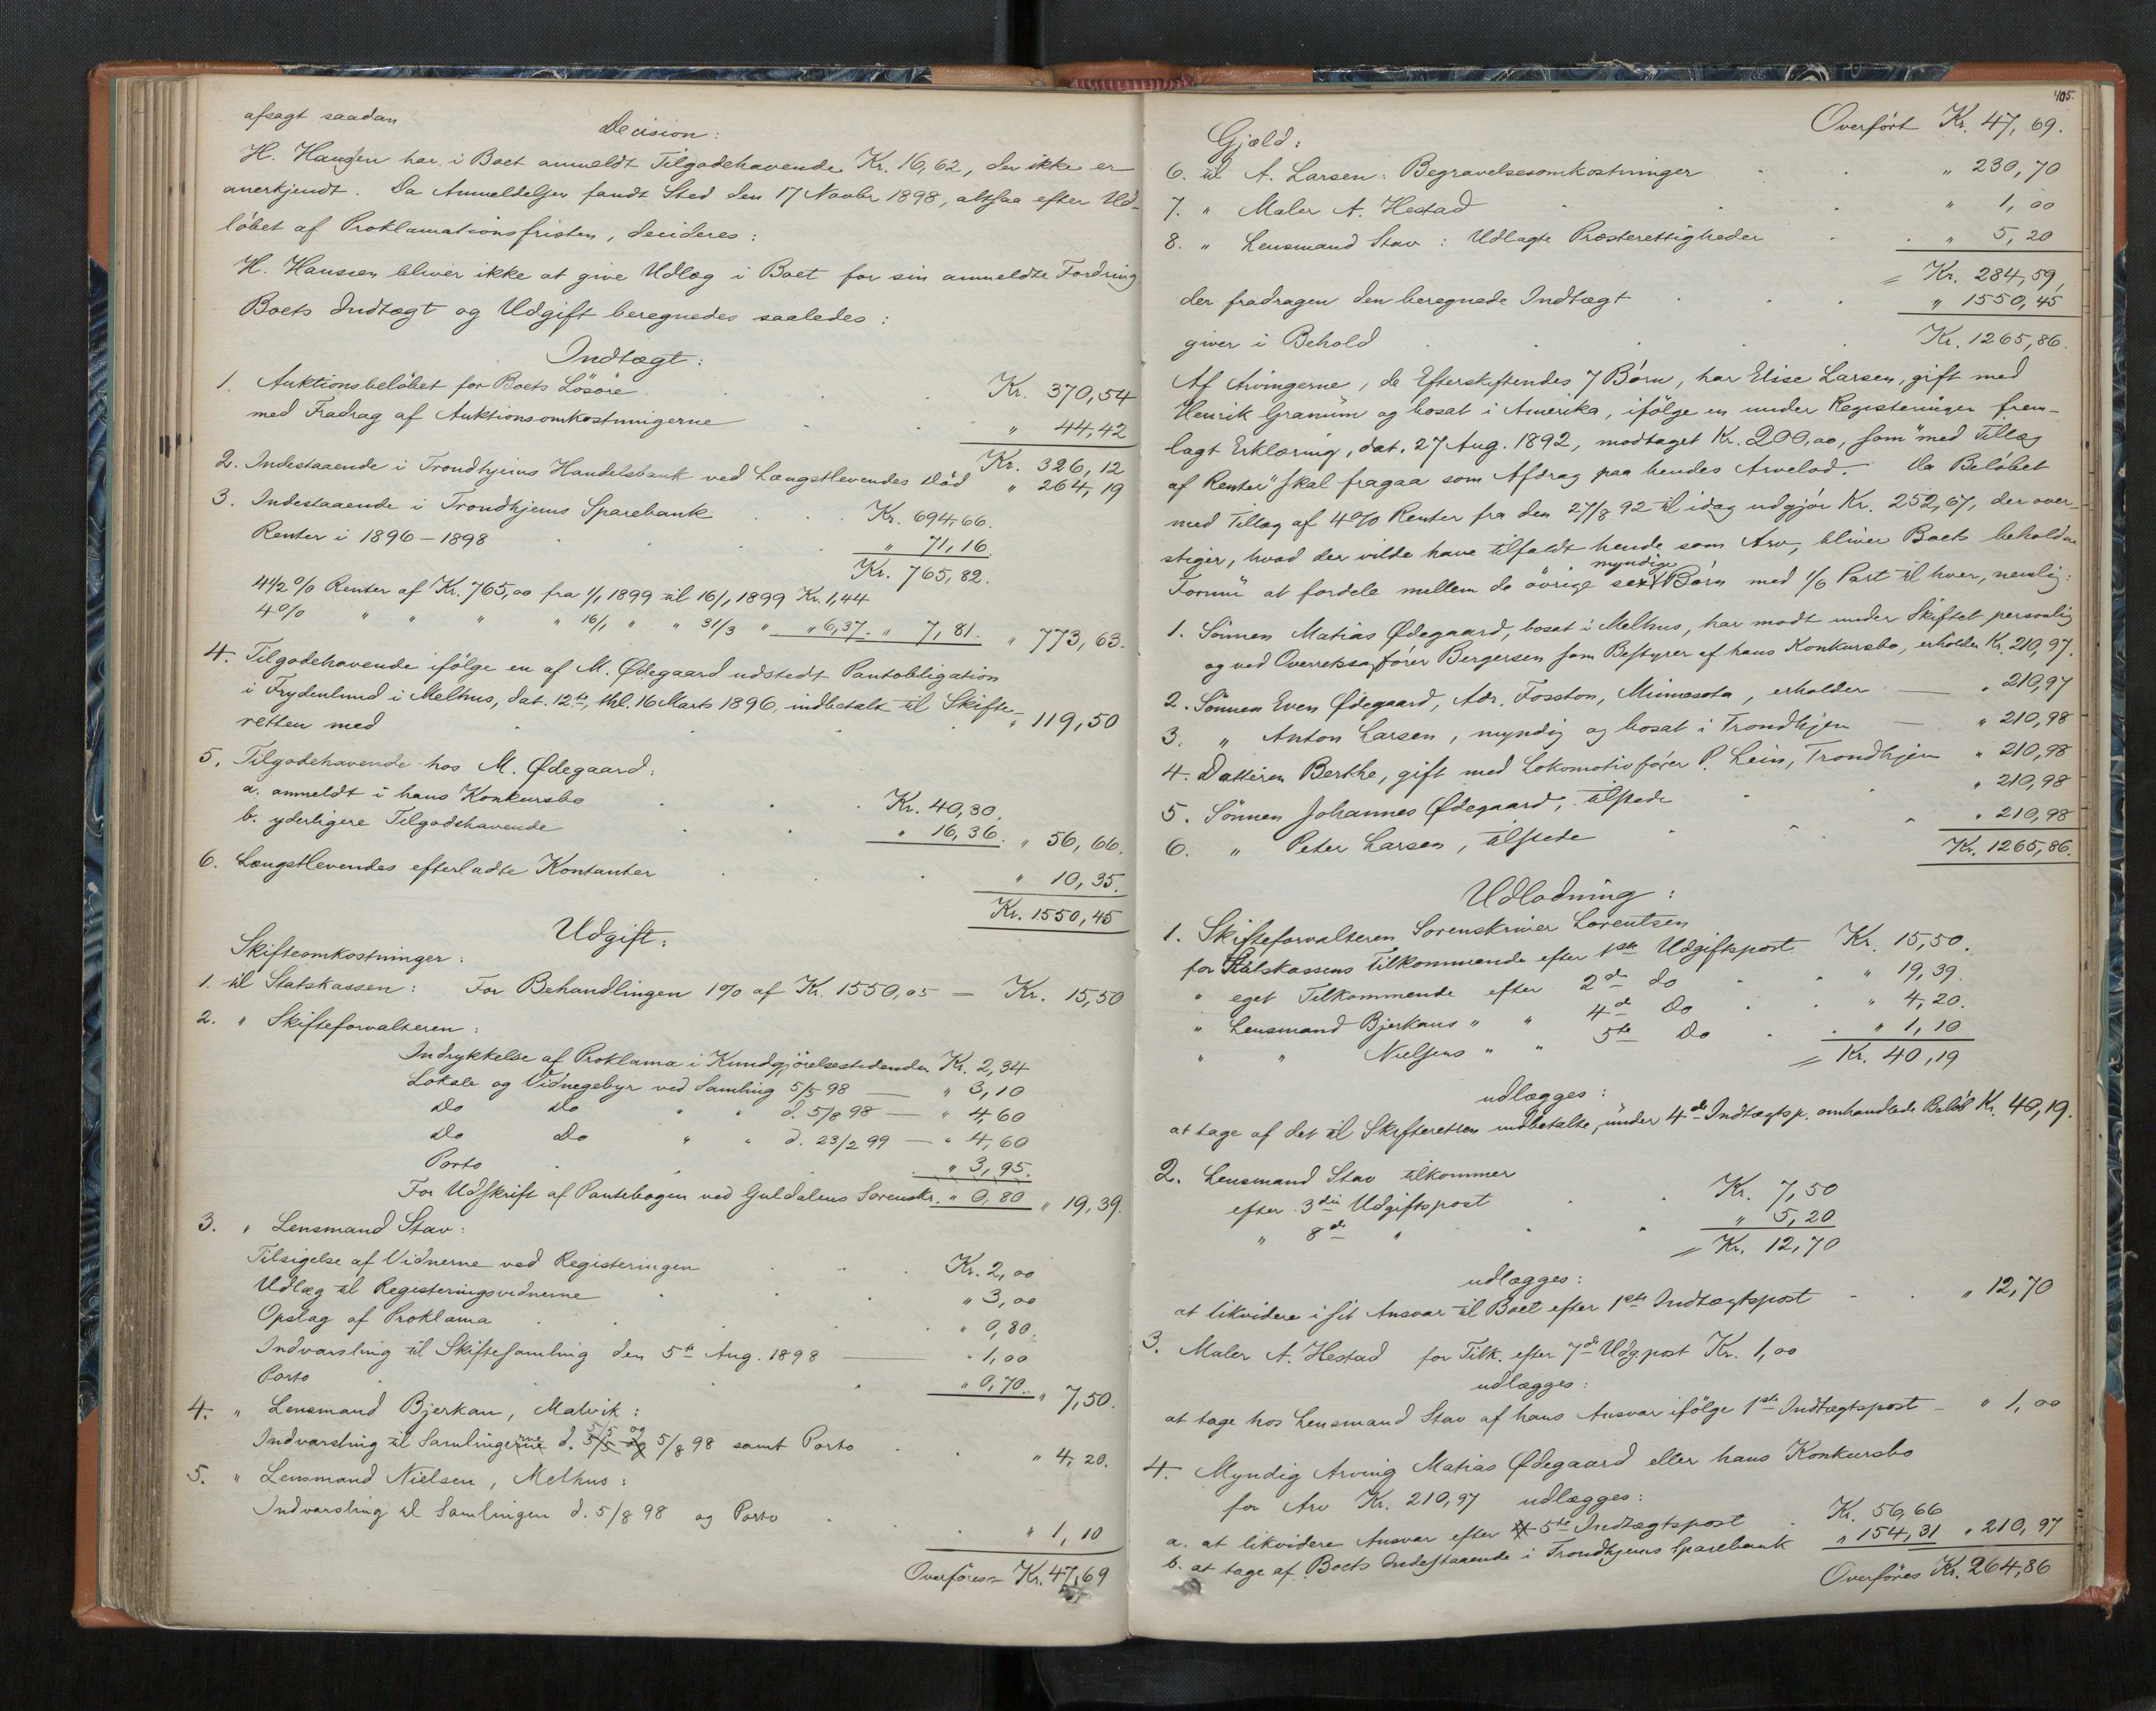 afsagt saadan
Decision:
H. Hansen har i Boet anmeldt Tilgodehavende Kr. 16,62, der ikke er
anerkjendt. Da Anmeldelsen fandt Sted den 17 Novbr 1898, altsaa efter Ud-
løbet af Proklamationsfristen, decideres:
H. Hanssen bliver ikke at give Udlæg i Boet for sin anmeldte Fordring.
Boets Indtægt og Udgift beregnedes saaledes:
Indtægt:
1. Auktionsbeløbet for Boets Løsøre . . Kr. 370,54
med Fradrag af Auktionsomkostningerne . . " 44,42
Kr. 326,12
2. Indestaaende i Trondhjems Handelsbank ved Længstlevendes Død " 264,19
3. Indestaaende i Trondhjems Sparebank . . Kr. 694,66.
Renter i 1896-1898 . . " 71,16.
Kr. 765,82.
4 1/2 % Renter af Kr. 765,00 fra 1/1 1899 til 16/1 1899 Kr. 1,44
4% " " " " 16/1 " " 31/3 " " 6,37. " 7,81. " 773,63.
4. Tilgodehavende ifølge en af M. Ødegaard udstedt Pantobligation
i Frydenlund i Melhus, dat. 12te, thl. 16 Marts 1896, indbetalt til Skifte-
retten med . . " 119,50
5. Tilgodehavende hos M. Ødegaard:
a. anmeldt i hans Konkursbo . . Kr. 40,30.
b. yderligere Tilgodehavende . . " 16,36. " 56,66.
6. Længstlevendes efterladte Kontanter . . " 10,35.
Kr. 1550,45
Udgift:
Skifteomkostninger:
1. til Statskassen: For Behandlingen 1% af Kr. 1550,05 — Kr. 15,50
2. " Skifteforvalteren:
Indrykkelse af Proklama i Kundgjørelsestidenden Kr. 2,34
Lokale og Vidnegebyr ved Samling 5/5 98 — " 3,10
Do Do " " d. 5/8 98 — " 4,60
Do Do " " d. 23/2 99 — " 4,60
Porto . . " 3,95.
For Udskrift af Pantebogen ved Guldalens Sorenskr. " 0,80 " 19,39.
3. " Lensmand Stav:
Tilsigelse af Vidnerne ved Registeringen . . Kr. 2,00
Udlæg til Registeringsvidnerne . . " 3,00
Opslag af Proklama . . " 0,80.
Indvarsling til Skiftesamling den 5te Aug. 1898 — " 1,00
Porto . . " 0,70. " 7,50.
4. " Lensmand Bjerkan, Malvik:
5/5 og
Indvarsling til Samlingerne d. 5/5 og 5/8 98 samt Porto . . " 4,20.
5. " Lensmand Nielsen, Melhus:
Indvarsling til Samlingen d. 5/8 98 og Porto . . " 1,10
Overføres = Kr. 47,69
405.
Overført Kr. 47,69.
Gjæld:
6. til A. Larsen: Begravelsesomkostninger . . " 230,70
7. " Maler A. Hestad . . " 1,00
8. " Lensmand Stav: Udlagte Præsterettigheder . . " 5,20
= Kr. 284,59,
der fradragen den beregnede Indtægt . . " 1550,45
giver i Behold . . Kr. 1265,86.
Af Arvingerne, de Efterskiftendes 7 Børn, har Elise Larsen, gift med
Henrik Granum og bosat i Amerika, ifølge en under Registeringen frem-
lagt Erklæring, dat. 27 Aug. 1892, modtaget Kr. 200,00, som "med Tillæg
af Renter" skal fragaa som Afdrag paa hendes Arvelod. Da Beløbet
med Tillæg af 4% Renter fra den 27/8 92 til idag udgjør Kr. 252,67, der over-
stiger, hvad der vilde have tilfaldt hende som Arv, bliver Boets beholdne
myndige
Formue at fordele mellem de øvrige sex Børn med 1/6 Part til hver, nemlig:
1. Sønnen Matias Ødegaard, bosat i Melhus, har mødt under Skiftet personlig
og ved Overretssagfører Bergersen som Bestyrer af hans Konkursbo, erholder Kr. 210,97.
2. Sønnen Even Ødegaard, Adr. Fosston, Minnesota, erholder — " 210,97
3. " Anton Larsen, myndig og bosat i Trondhjem — " 210,98
4. Datteren Berthe, gift med Lokomotivfører P. Lein, Trondhjem " 210,98
5. Sønnen Johannes Ødegaard, tilstede . . " 210,98
6. " Peter Larsen, tilstede . . " 210,98
Kr. 1265,86.
Udlodning:
1. Skifteforvalteren Sorenskriver Lorentsen
for Statskassens Tilkommende efter 1ste Udgiftspost. Kr. 15,50.
" eget Tilkommende efter 2den do . . " 19,39.
" Lensmand Bjerkans " " 4de Do . . " 4,20.
" " Nielsens " " 5te Do . . " 1,10
= Kr. 40,19
udlægges:
at tage af det til Skifteretten indbetalte, under 4de Indtægtsp. omhandlede Beløb Kr. 40,19.
2. Lensmand Stav tilkommer
efter 3die Udgiftspost . . Kr. 7,50
" 8de " . . " 5,20
= Kr. 12,70
udlægges:
at likvidere i sit Ansvar til Boet efter 1ste Indtægtspost . . " 12,70
3. Maler A. Hestad for Tilk. efter 7de Udg.post Kr. 1,00
udlægges:
at tage hos Lensmand Stav af hans Ansvar ifølge 1ste Indtægtspost — " 1,00
4. Myndig Arving Matias Ødegaard eller hans Konkursbo
for Arv Kr. 210,97 udlægges:
a. at likvidere Ansvar efter 5te Indtægtspost . Kr. 56,66
b. at tage af Boets Indestaaende i Trondhjems Sparebank " 154,31 " 210,97
Overføres Kr. 264,86